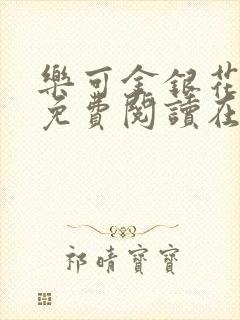 樂可金銀花
免費閱讀在
祁晴寶寶